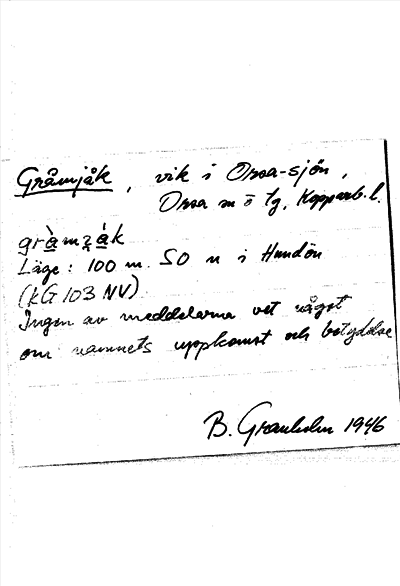 Gråmjåk, vik i Orsa-sjön,
Orsa sn o tg, Kopparb. l.
Läge: 100 m. SO n i Hundön
(kG 103 NV)
Ingen av meddelarna vet något
om namnets uppkomst och betydelse
B. Granholm 1946